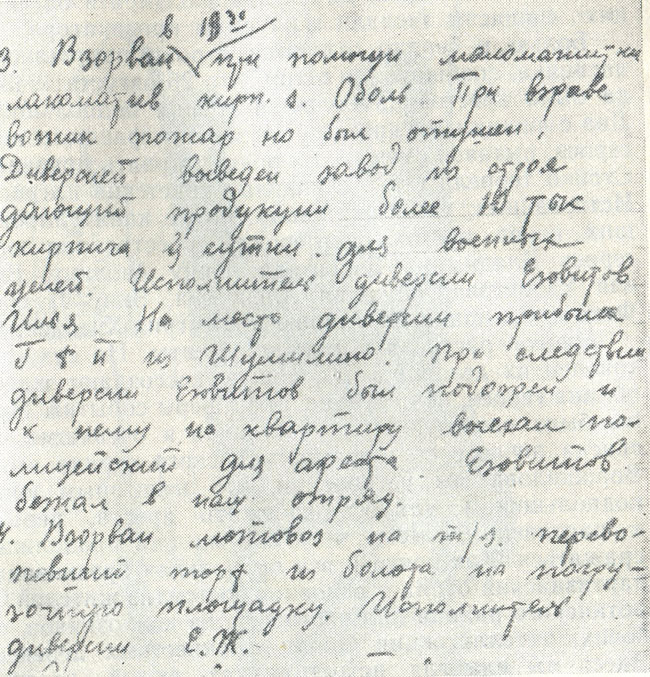 в 18³⁰
3. Взорван при помощи маломагнитки
лакоматив кирп. з. Оболь При взраве
возник пожар но был отушен.
Диверсией выведен завод из строя
дающий продукции более 10 тыс
кирпича в сутки. для военных
целей. Исполнитель диверсии Езовитов
Илья На место диверсии прибыла
из Шумилино. При следствии
диверсии Езовитов был подозрен и
к нему на квартиру выехал по-
лицейский для ареста Езовитов
бежал в наш отряд.
4. Взорван мотовоз на т/з. перево-
зивший торф из болота на погру-
зочную площадку. Исполнитель
диверсии Е.Ж.